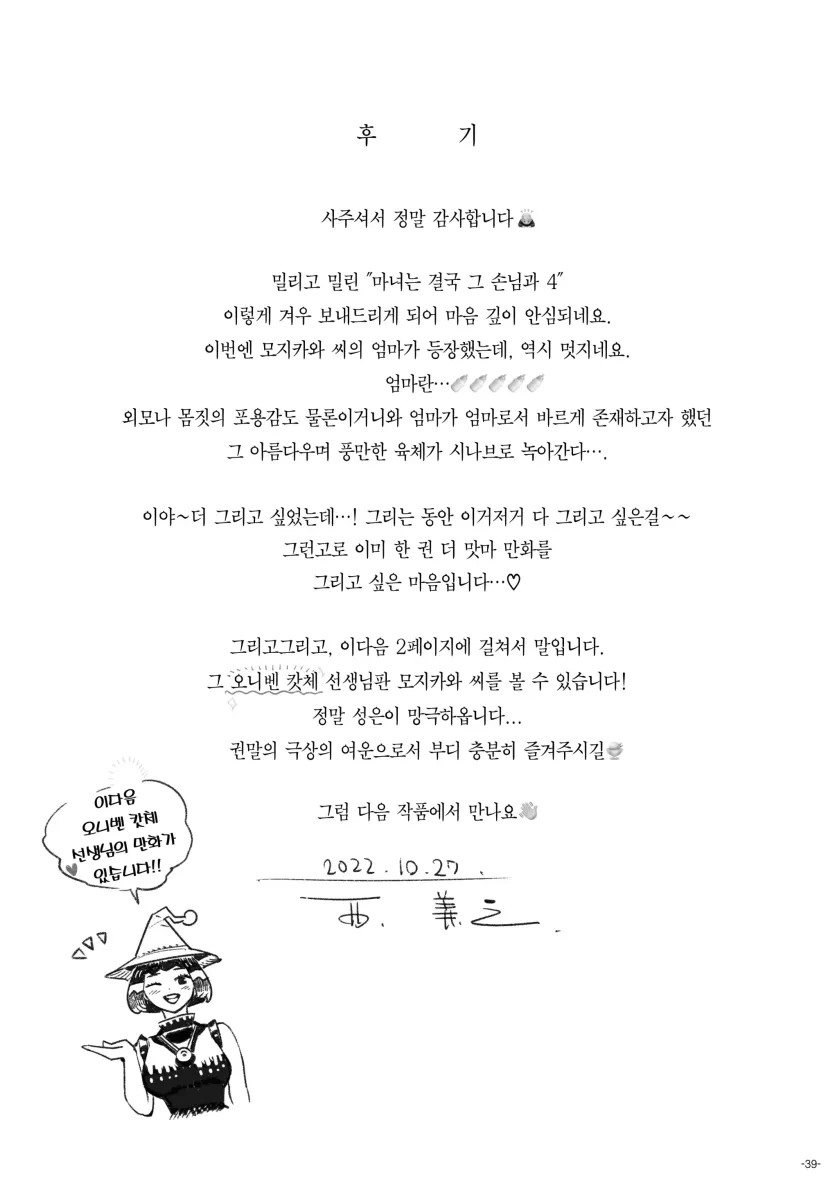 후 기
사주셔서 정말 감사합니다🙇
밀리고 밀린 "마녀는 결국 그 손님과 4"
이렇게 겨우 보내드리게 되어 마음 깊이 안심되네요.
이번엔 모지카와 씨의 엄마가 등장했는데, 역시 멋지네요.
엄마란…🍼🍼🍼🍼🍼
외모나 몸짓의 포용감도 물론이거니와 엄마가 엄마로서 바르게 존재하고자 했던
그 아름다우며 풍만한 육체가 시나브로 녹아간다….
이야~더 그리고 싶었는데…! 그리는 동안 이거저거 다 그리고 싶은걸~~
그런고로 이미 한 권 더 맛마 만화를
그리고 싶은 마음입니다…♡
그리고그리고, 이다음 2페이지에 걸쳐서 말입니다.
그 오니벤 캇체 선생님판 모지카와 씨를 볼 수 있습니다!
정말 성은이 망극하옵니다...
권말의 극상의 여운으로서 부디 충분히 즐겨주시길🍨
그럼 다음 작품에서 만나요👋
이다음
오니벤 캇체
선생님의 만화가
있습니다!!
2022.10.27.
西. 義.之.
-39-